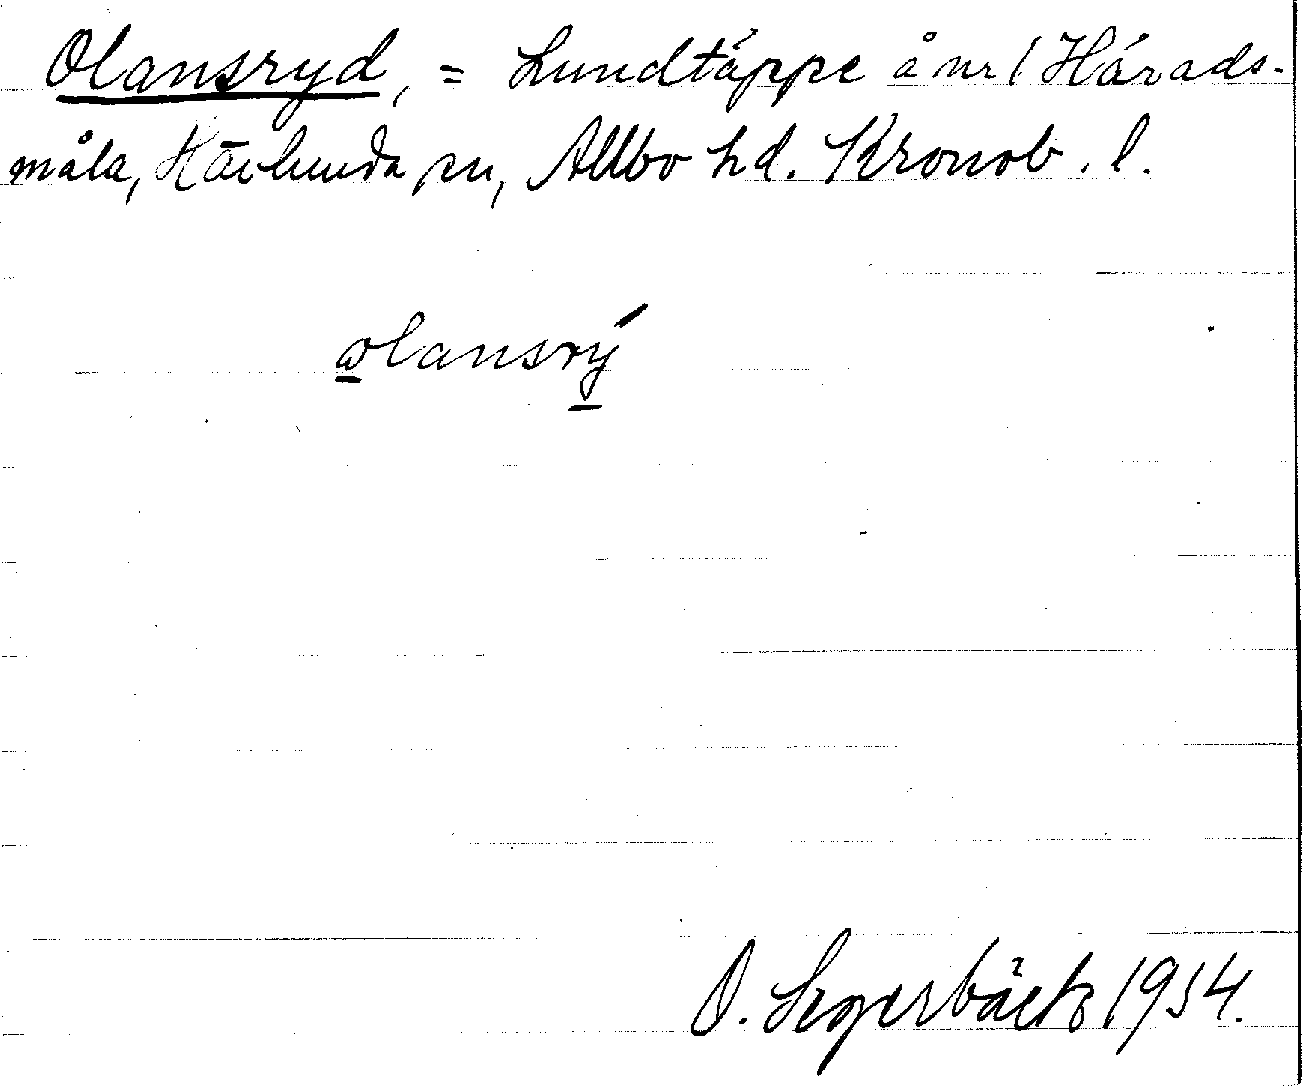 Olansryd, = Lundtäppe å nr 1 Härads-
måla, Härlunda sn, Allbo hd. Kronob. l.
ɷlansrý
O. Segerbäck 1954.